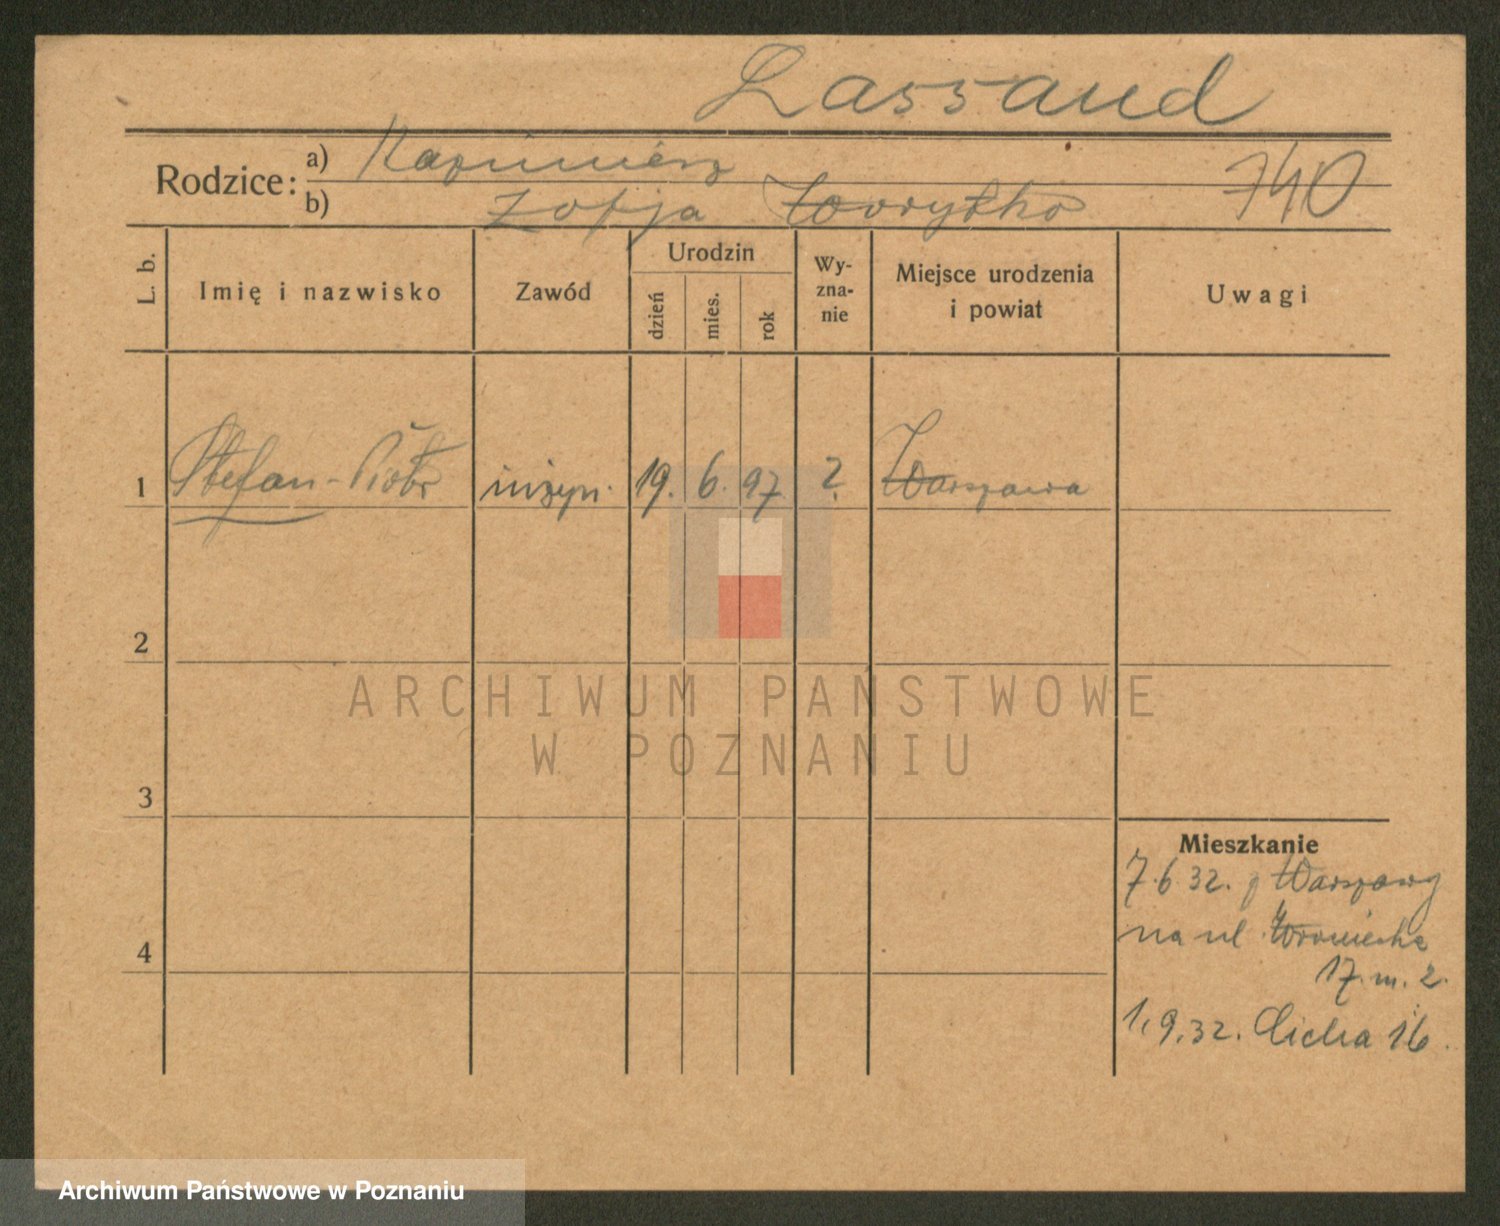 Lassaud
Rodzice:
a) Kazimierz
b) Zofja
740
L. b.
Imię i nazwisko
Zawód
Urodzin
dzień
mies.
rok
Wy-
zna-
nie
Miejsce urodzenia
i powiat
Uwagi
1 Stefan-Piotr inżyn. 19. 6. 97 ?. Warszawa
2
3
4
Mieszkanie
7.6.32. z Warszawy
na ul.
17. m. 2.
1.9.32. Cicha 16.
ARCHIWUM PAŃSTWOWE
W POZNANIU
Archiwum Państwowe w Poznaniu